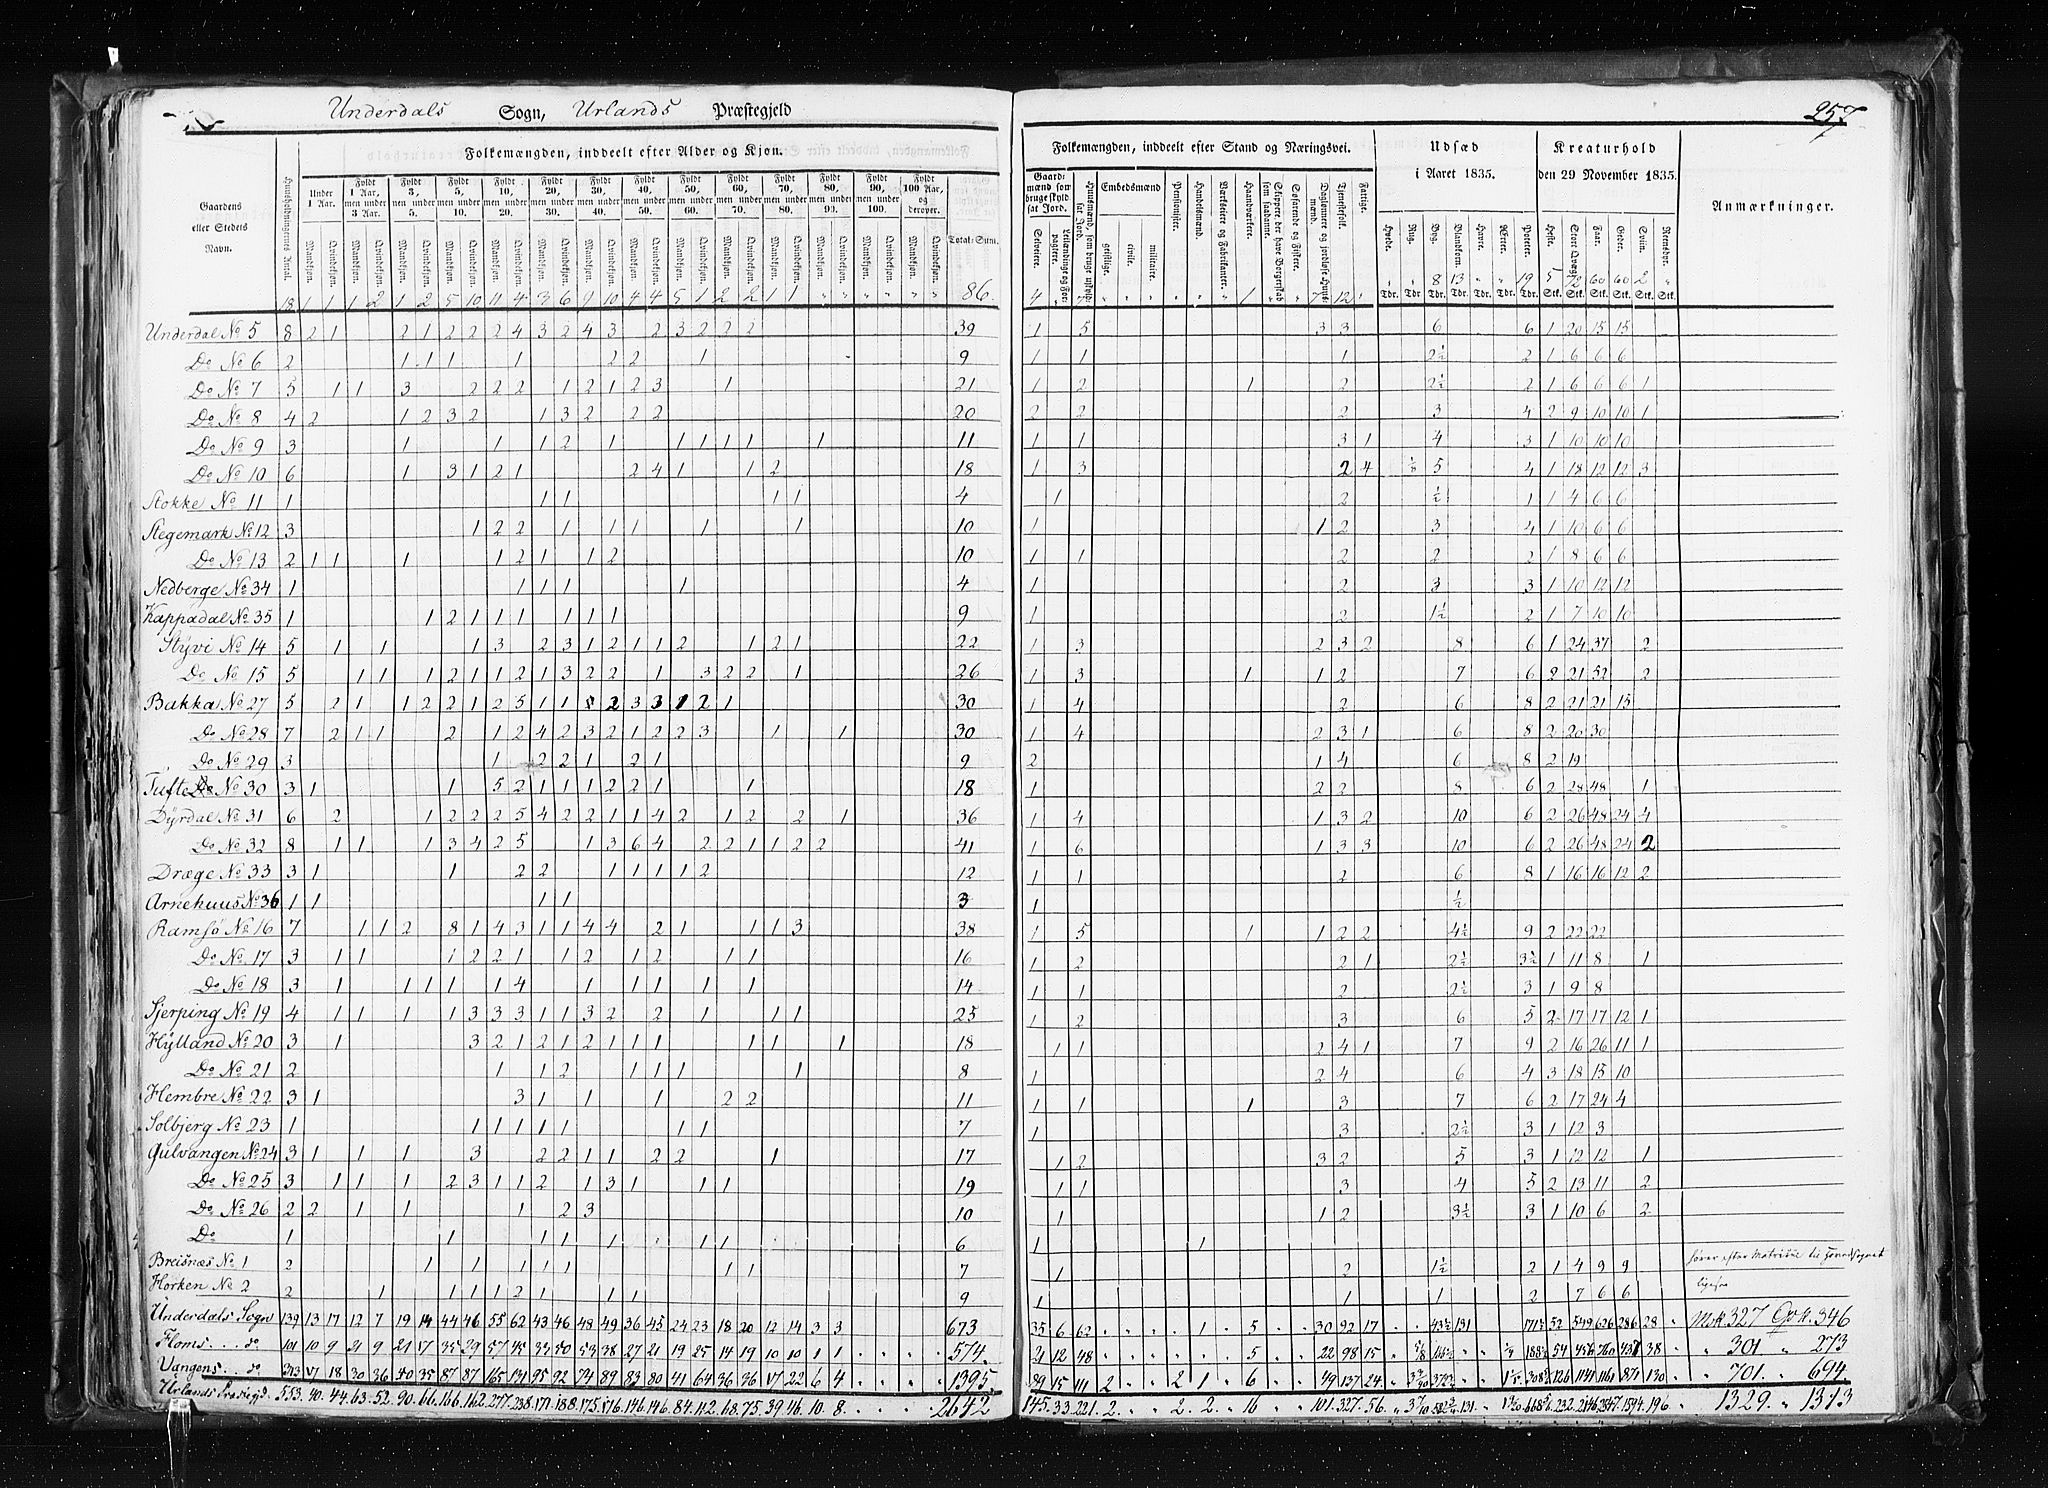 Underdals Sogn, Urlands Præstegjeld
257
Folkemængden, inddeelt efter Alder og Kjøn.
Folkemængden, inddeelt efter Stand og Næringsvei.
Udsæd i Aaret 1835.
Kreaturhold den 29 November 1835.
Anmærkninger.
Gaardens eller Stedets Navn.
Huusholdningernes Antal.
Under 1 Aar.
Fyldt 1 Aar, men under 3 Aar.
Fyldt 3, men under 5.
Fyldt 5, men under 10.
Fyldt 10, men under 20.
Fyldt 20, men under 30.
Fyldt 30, men under 40.
Fyldt 40, men under 50.
Fyldt 50, men under 60.
Fyldt 60, men under 70.
Fyldt 70, men under 80.
Fyldt 80, men under 90.
Fyldt 90, men under 100.
Fyldt 100 Aar, og derover.
Mandkjøn. Qvindekjøn.
Total-Sum.
Gaardmænd som bruge skyldsat Jord.
Selveiere.
Huusmænd, som bruge uskyldsat Jord.
Embedsmænd
geistlige. civile. militaire.
Pensionister.
Handelsmænd.
Værkseiere og Fabrikanter.
Haandværkere.
Skippere, der have Borgerskab som saadanne.
Søfarende og Fiskere.
Tjenestefolk.
Fattige.
Hvede. Rug. Byg. Blandkorn. Havre. Ærter. Poteter.
Heste. Stort Qvæg. Faar. Geder. Sviin. Rensdyr.
18 1 1 1 2 1 2 5 10 11 4 3 6 9 10 4 4 5 1 2 2 1 1 86.
Underdal No 5 8 2 1 2 1 2 2 2 4 3 2 4 3 2 3 2 2 2 39 1 5 3 3 6 6 1 20 15 15
Do No 6 2 1 1 1 1 2 2 1 9 1 1 1 2½ 2 1 6 6 6
Do No 7 5 1 1 3 2 2 2 1 2 1 2 3 1 21 1 2 1 2 2½ 2 1 6 6 6 1
Do No 8 4 2 1 2 3 2 1 3 2 2 2 20 2 2 2 3 4 2 9 10 10 1
Do No 9 3 1 1 1 2 1 1 1 1 1 1 11 1 1 3 1 4 3 1 10 10 10
Do No 10 6 1 3 1 2 1 2 4 1 1 2 18 1 3 2 4 ⅛ 5 4 1 18 12 12 3
Stokke No 11 1 1 1 1 1 4 1 2 ½ 1 1 4 6 6
Stegemark No 12 3 1 2 2 1 1 1 1 1 10 1 1 2 3 4 1 10 6 6
Do No 13 2 1 1 1 1 2 1 1 2 10 1 1 2 2 2 1 8 6 6
Nedberge No 34 1 1 1 1 1 4 1 2 3 3 1 10 12 12
Kappadal No 35 1 1 2 1 1 1 1 1 1 9 1 2 1½ 2 1 7 10 10
Styvi No 14 5 1 1 1 3 2 3 1 2 1 1 2 1 2 1 22 1 3 2 3 2 8 6 1 24 37 2
Do No 15 5 1 1 1 2 1 1 2 1 3 2 2 1 3 2 2 1 26 1 3 1 1 2 7 6 2 21 52 2
Bakka No 27 5 2 1 1 2 2 1 2 5 1 1 2 3 3 1 2 1 30 1 4 2 6 8 2 21 21 15
Do No 28 7 2 1 1 2 1 2 4 2 3 2 1 2 2 3 1 1 30 1 4 2 3 1 6 8 2 20 30
Do No 29 3 1 2 2 1 2 1 9 2 1 4 6 8 2 19
Tufte No 30 3 1 1 5 2 1 1 1 2 2 1 1 18 1 2 2 8 6 2 28 48 1
Dyrdal No 31 6 2 1 2 2 2 5 4 2 2 1 1 4 2 1 2 2 1 36 1 4 1 3 2 10 6 2 26 48 24 4
Do No 32 8 1 1 1 3 4 2 5 1 3 6 4 2 2 1 1 2 2 41 1 6 1 3 3 10 6 2 26 48 24 2
Dræge No 33 3 1 1 2 2 1 1 1 1 2 12 1 1 2 6 8 1 16 16 12 2
Arnehuus No 36 1 1 1 1 3 1 ½
Ramsö No 16 7 1 1 2 8 1 4 3 1 1 4 4 2 1 1 1 3 38 1 5 1 1 2 2 4½ 9 2 22 22
Do No 17 3 1 1 1 2 2 1 1 2 1 2 1 1 16 1 2 2 1 2½ 3½ 1 11 8 1
Do No 18 3 1 1 1 1 1 4 1 1 1 1 1 14 1 1 2 2½ 3 1 9 8
Sjerping No 19 4 1 1 1 1 3 3 3 1 1 3 2 2 1 1 1 25 1 2 3 6 5 2 17 17 12 1
Hylland No 20 3 1 3 2 1 2 1 2 1 1 1 1 1 1 18 1 1 2 4 1 7 9 2 16 26 11 1
Do No 21 2 1 1 2 1 1 1 1 8 1 2 4 6 4 3 18 15 10
Hembre No 22 3 1 3 1 1 1 2 2 11 1 1 1 3 7 6 2 17 24 4
Solbjerg No 23 1 1 1 1 1 1 1 1 7 1 3 2½ 3 1 12 3
Gulvangen No 24 3 1 1 1 3 2 2 1 1 2 2 1 17 1 2 3 2 5 3 1 12 12 1
Do No 25 3 1 1 1 2 3 1 1 2 1 3 1 1 1 19 1 1 3 4 5 2 13 11 2
Do No 26 2 2 1 1 1 2 3 10 1 1 2 3½ 3 1 10 6 2
Do 1 1 1 1 1 1 1 6 1 1
Breisnæs No 1 2 1 1 1 1 1 1 1 7 1 2 1½ 2 1 4 9 9 hører efter Matriklen til
Horken No 2 2 1 1 1 1 2 1 1 1 9 1 1 1 2 7 6 6 ligesaa
Underdals Sogn 139 13 17 12 7 19 14 44 46 55 62 43 46 48 49 36 45 24 23 18 20 12 14 3 3 673 35 6 62 1 5 30 92 17 43½ 131 171½ 52 549 626 286 28 Mdk. 327 Qvk. 346
Floms do 101 10 9 21 9 21 17 35 29 57 45 33 50 53 38 27 21 19 25 14 19 10 10 1 1 574 21 12 48 5 22 98 15 54 456 760 437 38 301 273
Vangens do 313 17 18 30 36 40 35 87 87 165 131 95 92 74 89 83 80 41 64 36 36 17 22 6 4 1395 89 15 111 2 2 1 6 49 137 24 126 1141 1161 871 130 701 694
Urlands Præstegjd. 553 40 44 63 52 90 66 166 162 277 238 171 188 175 176 146 146 84 112 68 75 39 46 10 8 2642 145 33 221 2 2 2 16 101 327 56 131 232 2146 2547 1594 196 1329 1313